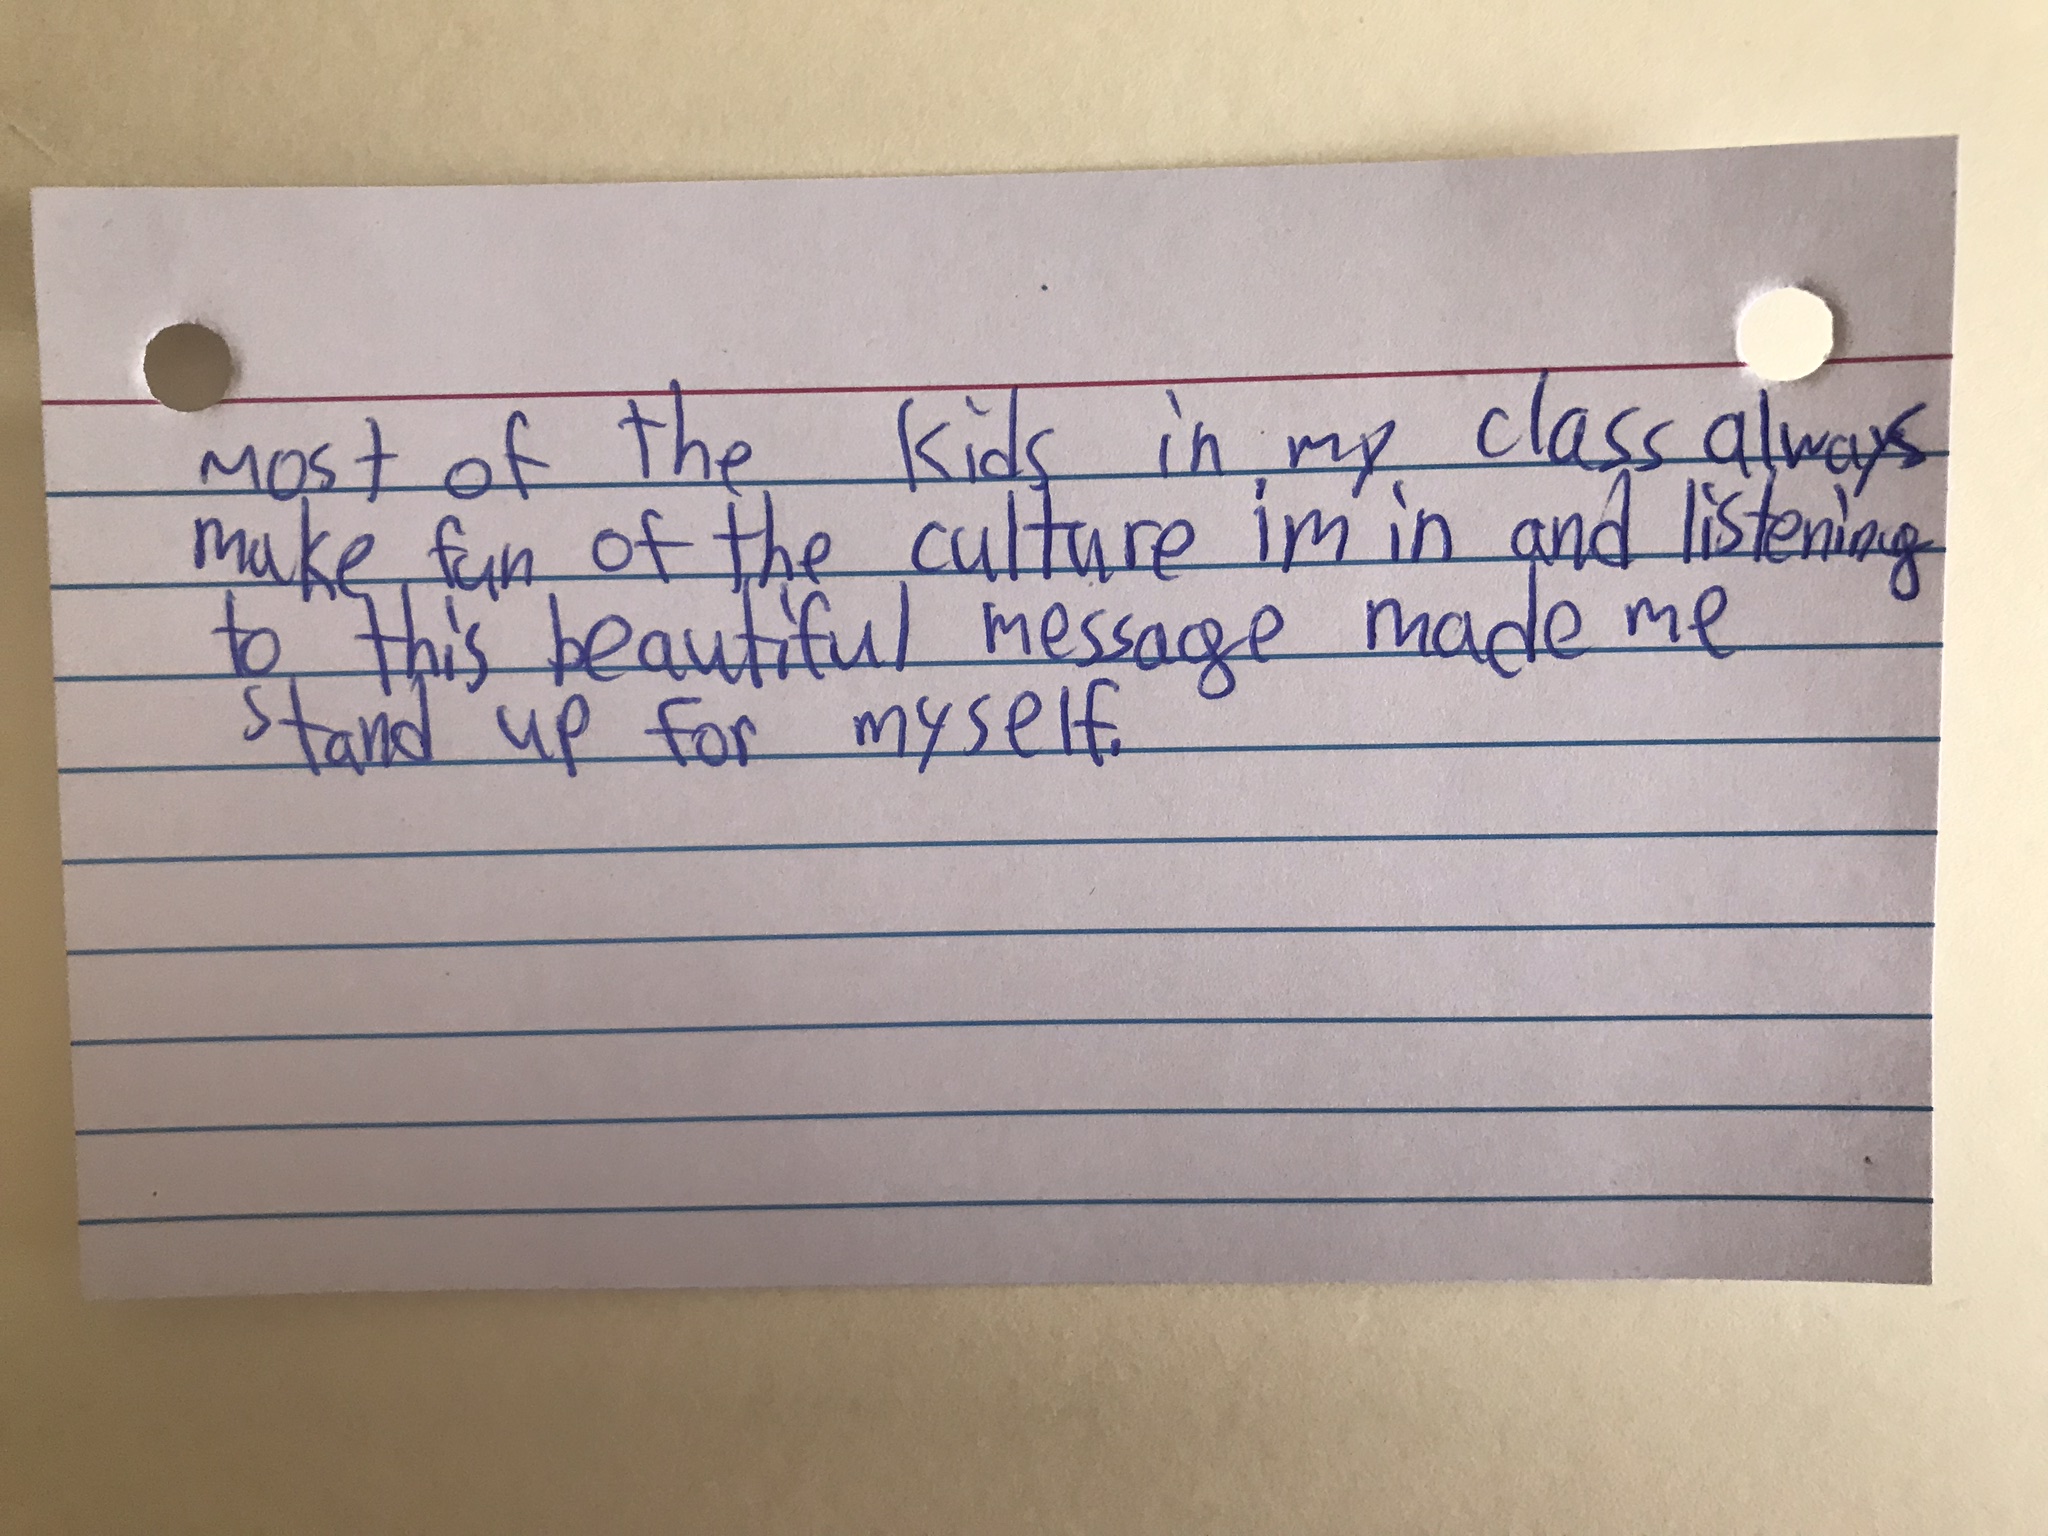 most of the kids in my class always
make fun of the culture im in and listening
to this beautiful message made me
stand up for myself.